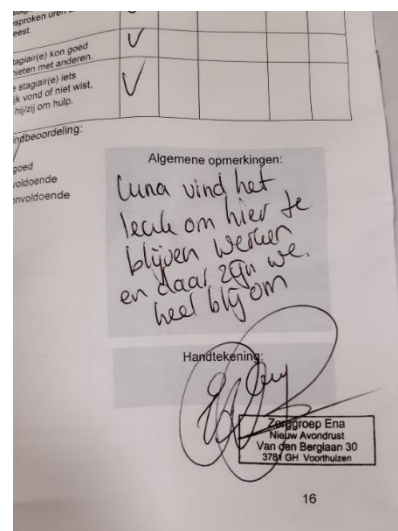 sproken uren
eest.
tagiair(e) kon goed
ieten met anderen.
stagiair(e) iets
jk vond of niet wist,
hij/zij om hulp.
ndbeoordeling:
goed
voldoende
onvoldoende
Algemene opmerkingen:
Luna vind het
leuk om hier te
blijven werken
en daar zijn we
heel blij om
Handtekening:
Zorggroep Ena
Nieuw Avondrust
Van den Berglaan 30
3781 GH Voorthuizen
16